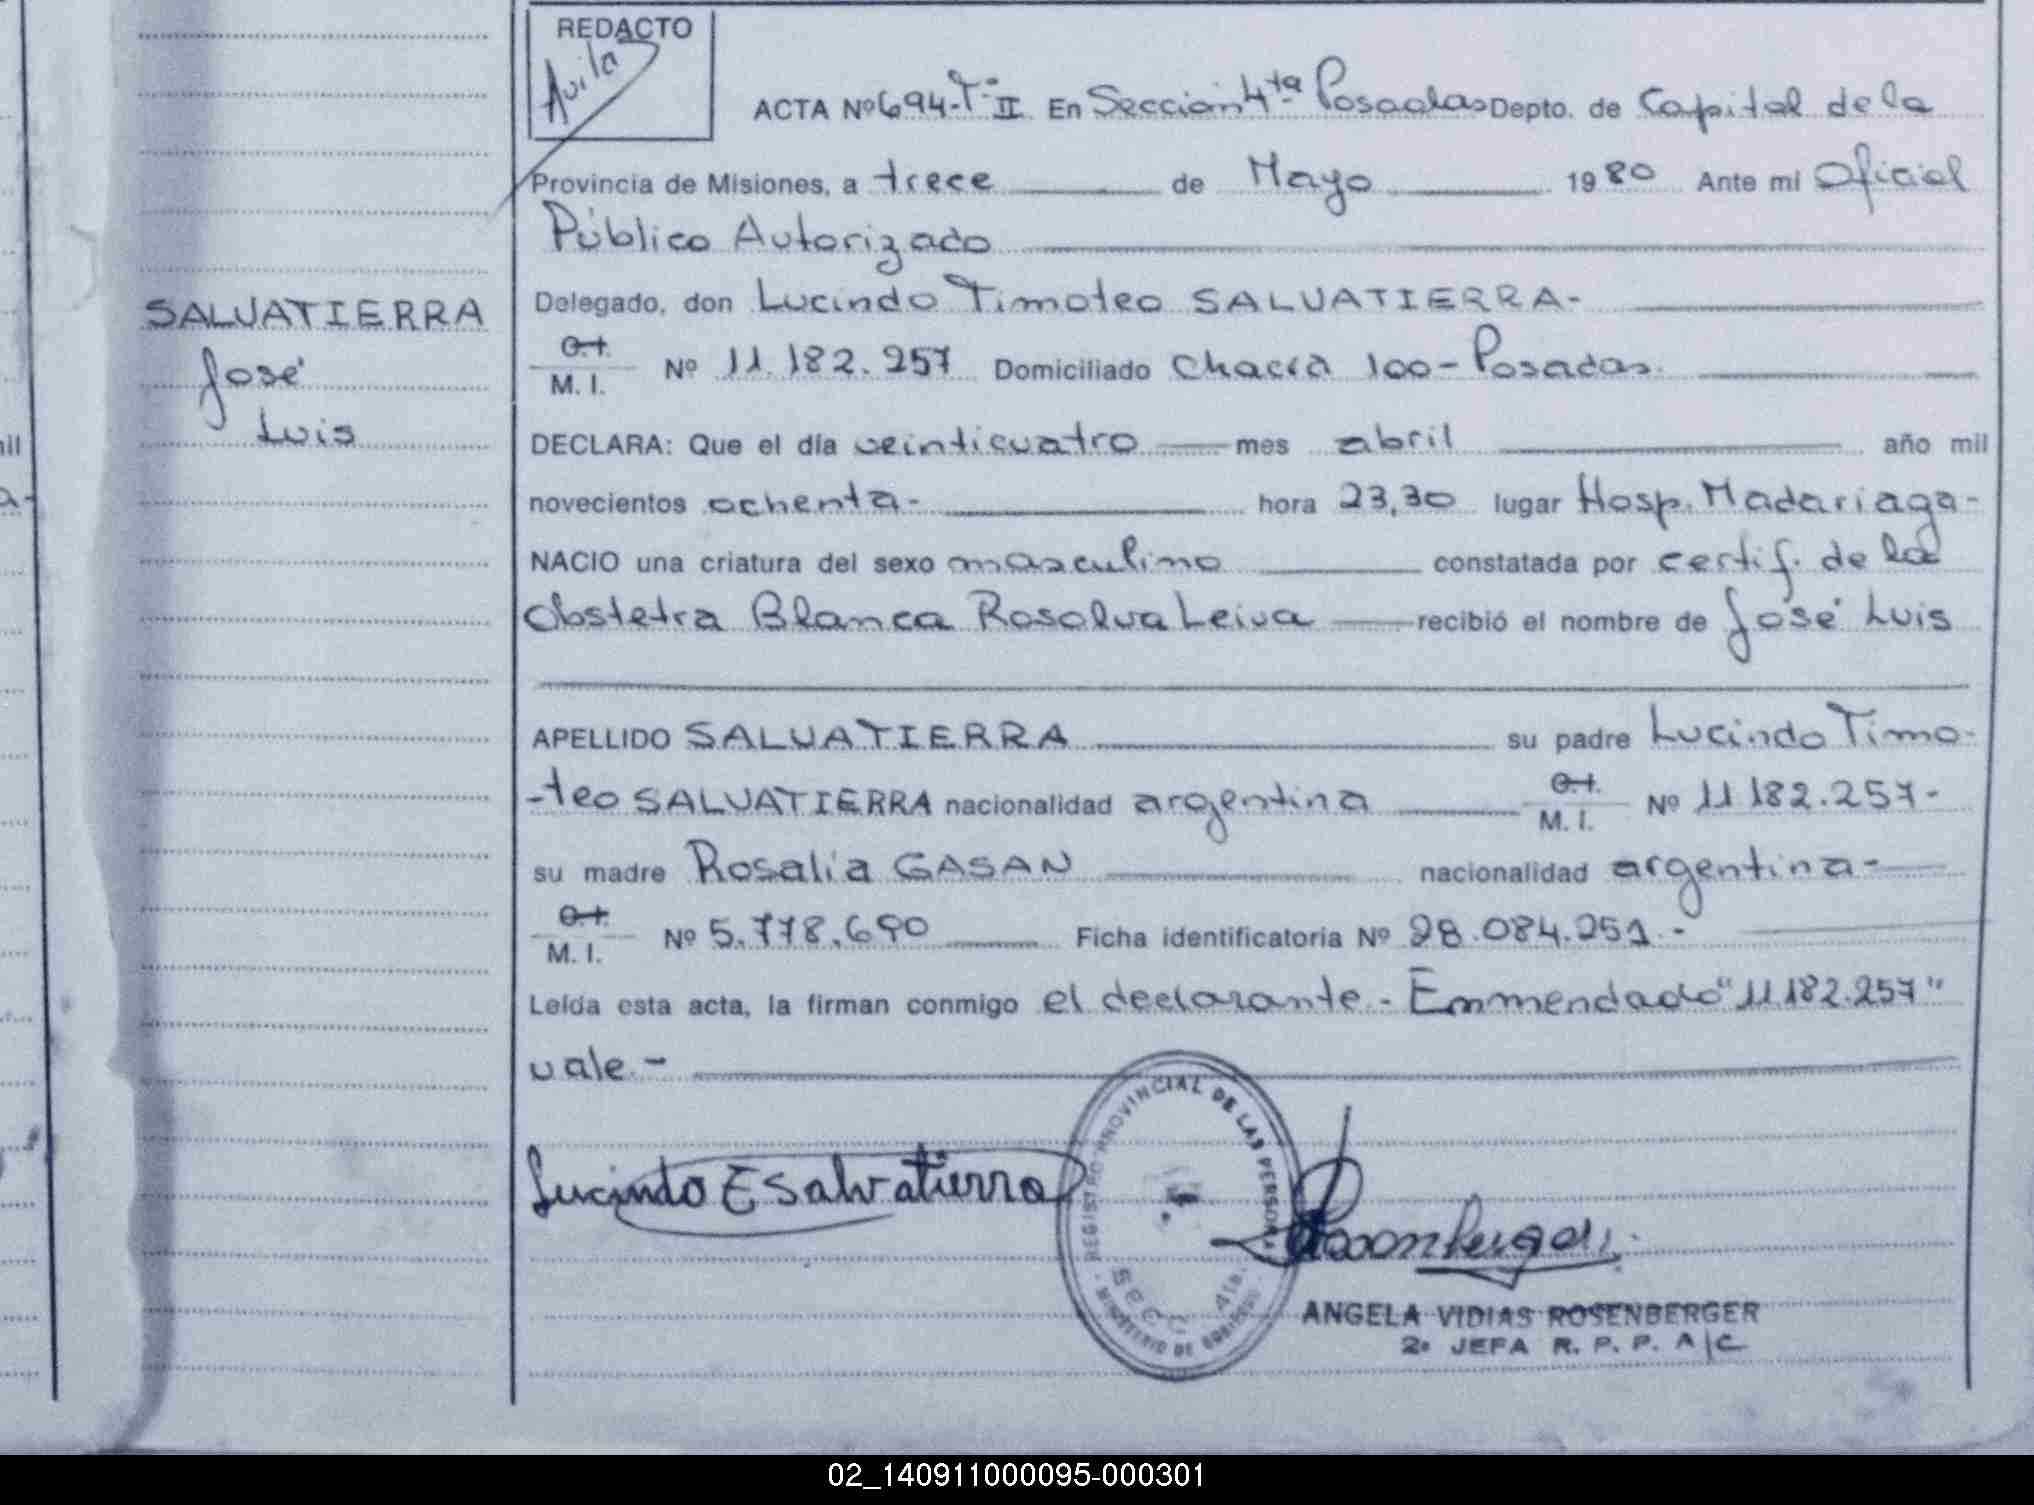 REDACTO
Avila
ACTA Nº 694-Tº II En Sección 4ta Posadas Depto. de Capital de la
Provincia de Misiones, a trece de Mayo 1980 Ante mi Oficial
Público Autorizado
Delegado, don Lucindo Timoteo SALVATIERRA-
C.I. M. I. Nº 11.182.257 Domiciliado Chacra 100-Posadas.
DECLARA: Que el día veinticuatro mes abril año mil
novecientos ochenta- hora 23,30 lugar Hosp. Madariaga-
NACIO una criatura del sexo masculino constatada por certif. de la
Obstetra Blanca Rosalva Leiva recibió el nombre de José Luis
APELLIDO SALVATIERRA su padre Lucindo Timo-
-teo SALVATIERRA nacionalidad argentina C.I. M. I. Nº 11182.257-
su madre Rosalia GASAN nacionalidad argentina-
C.I. M. I. Nº 5.778.690 Ficha identificatoria Nº 28.084.251.-
Leída esta acta, la firman conmigo el declarante.- Enmendado "11.182.257"
vale.-
SALVATIERRA
José
Luis
Lucindo E Salvatierra
REGISTRO PROVINCIAL DE LAS PERSONAS
SECC. 4ta.
MINISTERIO DE GOBIERNO
Rosenberger
ANGELA VIDIAS ROSENBERGER
2º JEFA R. P. P. A/C
02_140911000095-000301